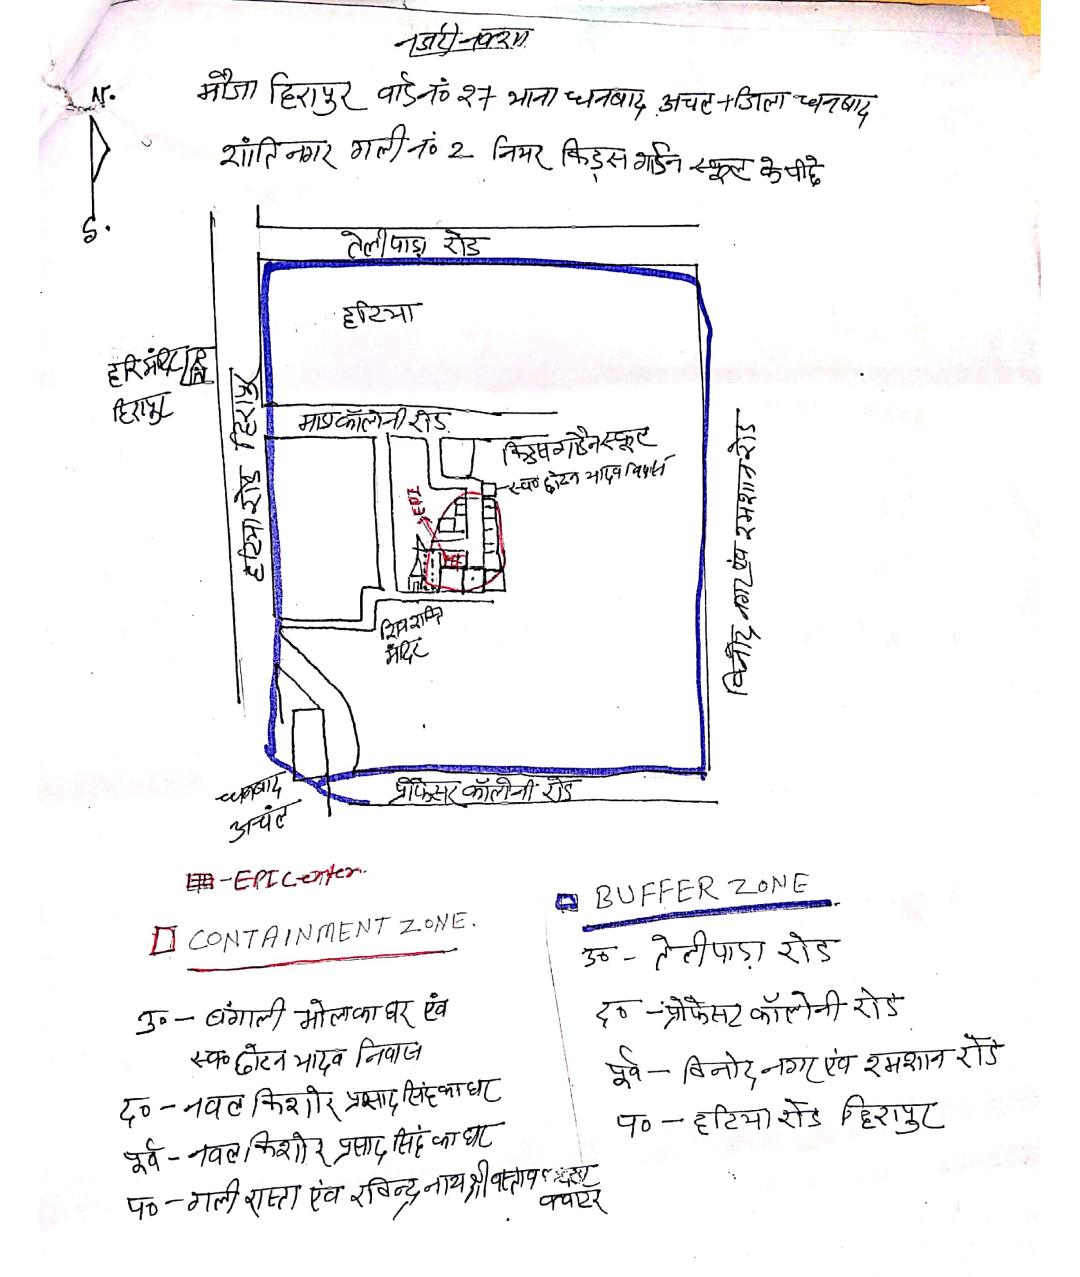 नजरी नक्शा
N.
मौजा हिरापुर वार्ड नं० 27 थाना धनबाद अंचल + जिला धनबाद
शांति नगर गली नं० 2 नियर किड्स गार्डेन स्कूल के पीछे
S.
तेलीपाड़ा रोड
हटिया
हरि मंदिर
हिरापुर
हटिया रोड हिरापुर
कॉलोनी रोड
किड्स गार्डेन स्कूल
स्व० छोटन यादव निवास
EPI
विनोद नगर एंव श्मशान रोड
शिव शक्ति
मंदिर
धनबाद
अंचल
प्रोफेसर कॉलोनी रोड
- EPICenter.
CONTAINMENT ZONE.
उ० - बंगाली मोल का घर एंव
स्व० छोटन यादव निवास
द० - नवल किशोर प्रसाद सिंह का घर
पूर्व - नवल किशोर प्रसाद सिंह का घर
प० - गली रास्ता एंव रविन्द्र नाथ श्रीवास्तव
क्वाटर
BUFFER ZONE
उ० - तेलीपाड़ा रोड
द० - प्रोफेसर कॉलोनी रोड
पूर्व - बिनोद नगर एंव श्मशान रोड
प० - हटिया रोड हिरापुर